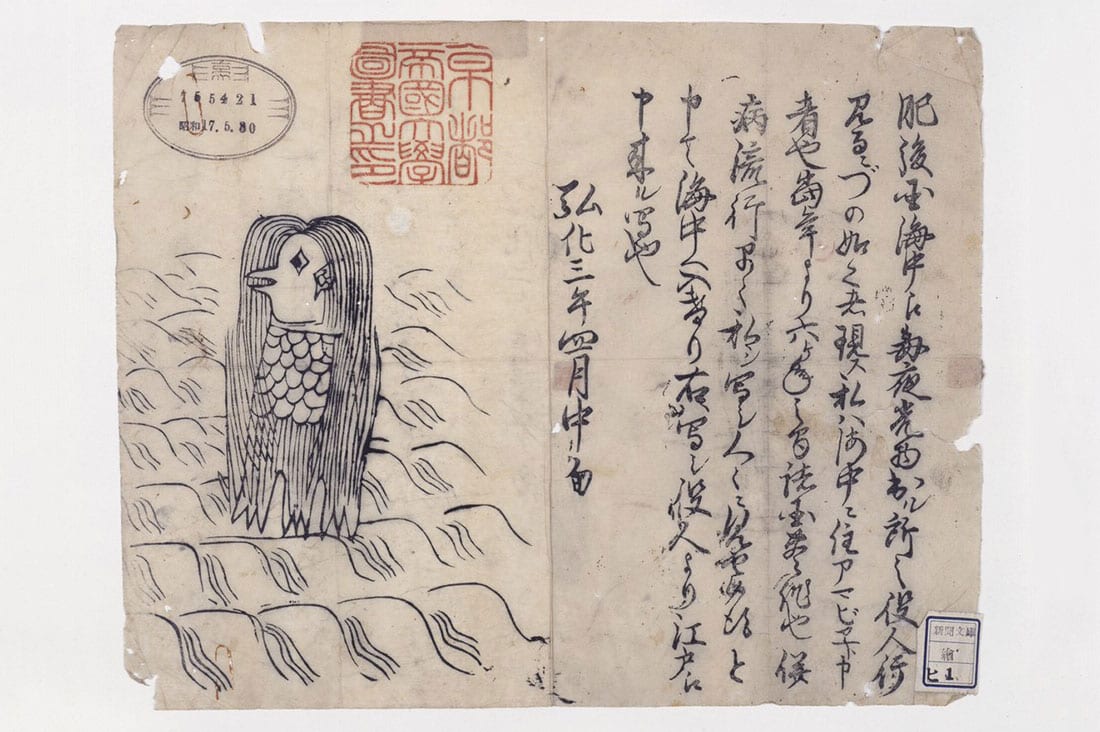 肥後国海中江毎夜光物出ル所之役人行
見るニづの如く者現ス私ハ海中ニ住アマビヱト申
者也当年より六ヶ年之間諸国豊作也併
病流行早々私シ写シ人々ニ見セ候得と
申て海中へ入けり右写シ役人より江戸江
申来ル写也
弘化三年四月中旬
京都
帝國大學
圖書之印
昭和17.5.30
新聞文庫
繪
ヒ1